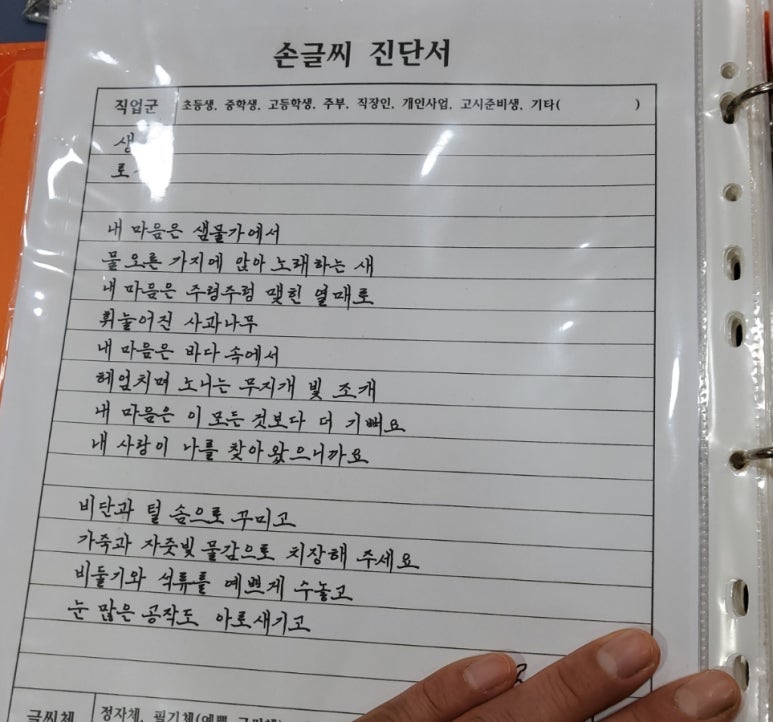 손글씨 진단서
직업군 초등생, 중학생, 고등학생, 주부, 직장인, 개인사업, 고시준비생, 기타( )
생
로
내 마음은 샘물가에서
물오른 가지에 앉아 노래하는 새
내 마음은 주렁주렁 맺힌 열매로
휘늘어진 사과나무
내 마음은 바다 속에서
헤엄치며 노니는 무지개 빛 조개
내 마음은 이 모든 것보다 더 기뻐요
내 사랑이 나를 찾아왔으니까요
비단과 털 솜으로 꾸미고
가죽과 자줏빛 물감으로 치장해 주세요
비둘기와 석류를 예쁘게 수놓고
눈 많은 공작도 아로새기고
글씨체 정자체, 필기체